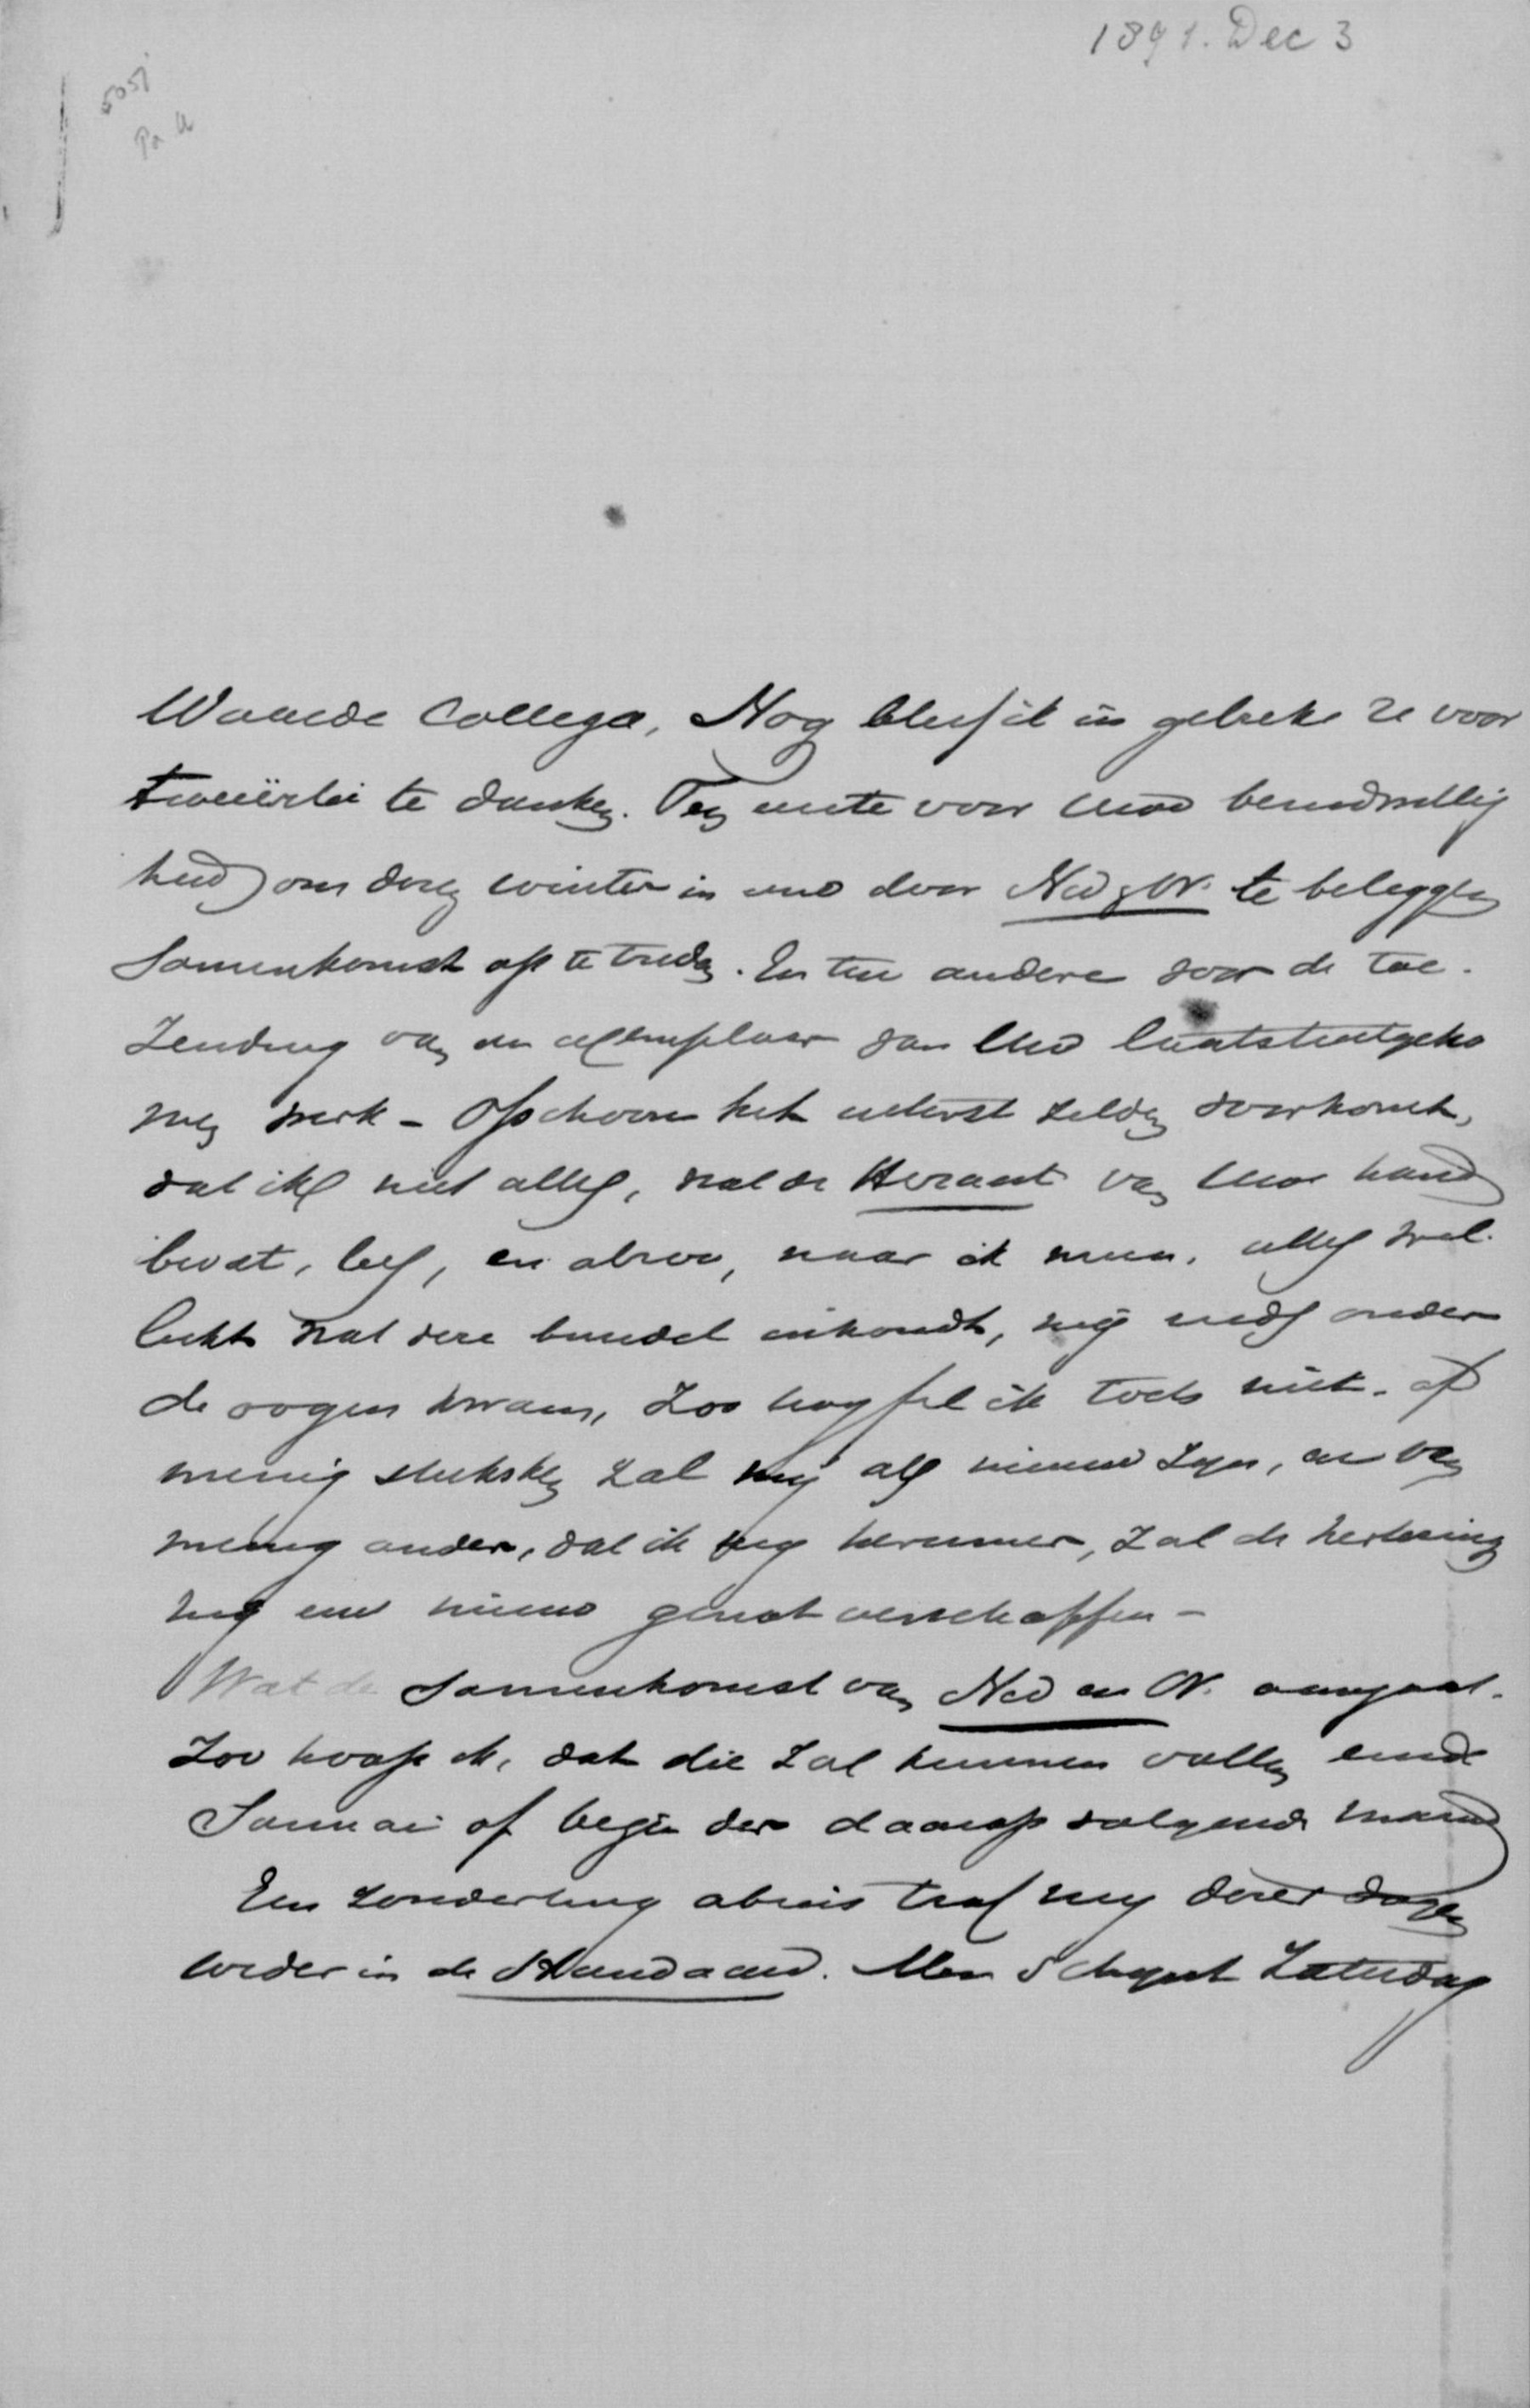 1891. Dec 3
5051
Pa U
Waarde Collega, Nog bleef ik in gebreke U voor
tweeërlei te danken. Ten eerste voor Uwe bereidwillig
heid om dezen winter in eene door Ned & Or. te beleggen
Samenkomst op te treden. En ten andere voor de toe-
zending van een exemplaar van Uw laatstuitgeko
men werk - Ofschoon het uiterst zelden voorkomt,
dat ik niet alles, wat de Heraut van Uwe hand
bevat, lees, en alzoo, naar ik meen, alles wel-
licht wat deze bundel inhoudt, mij reeds onder
de oogen kwam, zoo twyfel ik toch niet, of
menig stukske zal mij als nieuw zyn, en van
menig ander, dat ik my herinner, zal de herlezing
my een nieuw genot verschaffen -
Wat de Samenkomst van Ned en Or. aangaat.
Zoo hoop ik, dat die zal kunnen vallen einde
Januari of begin der daarop volgende maand
Een zonderling abuis trof my dezer dagen
weder in de Standaard. Men schynt Zaterdag